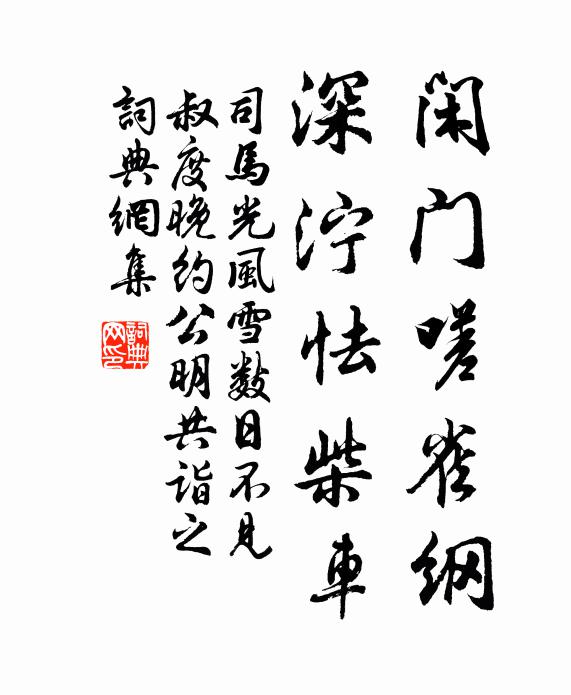 闲门嗟雀网
深泞怯柴車
司馬光風雪数日不見
叔度晚约公明共诣之
詞典網集
詞典网印